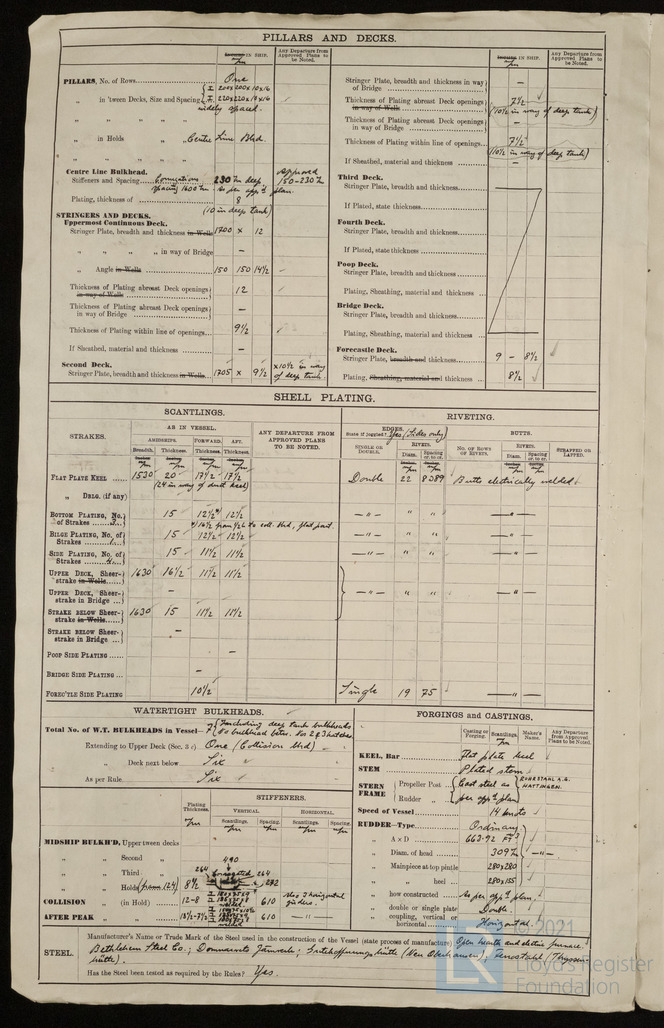 PILLARS AND DECKS.
IN SHIP.
Any Departure from Approved Plans to be Noted.
PILLARS, No. of Rows One
„ in 'tween Decks, Size and Spacing
widely spaced.
„ in Holds „ Centre Line Bhd.
Centre Line Bulkhead.
Stiffeners and Spacing Corrugations 230 deep Approved 150-230
spacing as per appd plan.
Plating, thickness of 8
(10 in deep tank)
STRINGERS AND DECKS.
Uppermost Continuous Deck.
Stringer Plate, breadth and thickness in Wells 1700 x 12
„ „ „ „ in way of Bridge —
„ Angle in Wells 150 150 14½
Thickness of Plating abreast Deck openings in way of Wells 12
Thickness of Plating abreast Deck openings in way of Bridge —
Thickness of Plating within line of openings 9½
If Sheathed, material and thickness —
Second Deck.
Stringer Plate, breadth and thickness in Wells 1705 x 9½ x10½ in way of deep tank.
IN SHIP.
Any Departure from Approved Plans to be Noted.
Stringer Plate, breadth and thickness in way of Bridge —
Thickness of Plating abreast Deck openings in way of Wells 7½
(10½ in way of deep tank)
Thickness of Plating abreast Deck openings in way of Bridge —
Thickness of Plating within line of openings 7½
(10½ in way of deep tank)
If Sheathed, material and thickness —
Third Deck.
Stringer Plate, breadth and thickness
If Plated, state thickness
Fourth Deck.
Stringer Plate, breadth and thickness
If Plated, state thickness
Poop Deck.
Stringer Plate, breadth and thickness
Plating, Sheathing, material and thickness
Bridge Deck.
Stringer Plate, breadth and thickness
Plating, Sheathing, material and thickness
Forecastle Deck.
Stringer Plate, breadth and thickness 9 - 8½
Plating, Sheathing, material and thickness 8½
SHELL PLATING.
SCANTLINGS.
RIVETING.
STRAKES.
AS IN VESSEL.
AMIDSHIPS. FORWARD. AFT.
Breadth. Thickness. Thickness. Thickness.
ANY DEPARTURE FROM APPROVED PLANS TO BE NOTED.
EDGES.
State if joggled? Yes (Sides only)
SINGLE OR DOUBLE.
RIVETS.
Diam. Spacing cr. to cr.
BUTTS.
NO. OF ROWS OF RIVETS.
RIVETS.
Diam. Spacing cr. to cr.
STRAPPED OR LAPPED.
FLAT PLATE KEEL 1530 20 17½ 17½ Double 22 Butts electrically welded
(24 in way of duct keel)
„ DBLG. (if any)
BOTTOM PLATING, No. of Strakes 15 12½ 12½ — „ — „ „ — „ —
BILGE PLATING, No. of Strakes 15 12½ 12½ — „ — „ „ — „ —
SIDE PLATING, No. of Strakes 4 15 11½ 11½ — „ — „ „ — „ —
UPPER DECK, Sheerstrake in Wells 1630 16½ 11½ 11½
UPPER DECK, Sheerstrake in Bridge — — „ — „ „ — „ —
STRAKE BELOW Sheerstrake in Wells 1630 15 11½ 11½
STRAKE BELOW Sheerstrake in Bridge —
POOP SIDE PLATING —
BRIDGE SIDE PLATING —
FORE'CTLE SIDE PLATING 10½ Single 19 75 — „ —
WATERTIGHT BULKHEADS.
Total No. of W.T. BULKHEADS in Vessel— 7 (including deep tank bulkheads
Extending to Upper Deck (Sec. 3 c) One (Collision bhd)
„ Deck next below Six
As per Rule Six
STIFFENERS.
Plating Thickness.
VERTICAL. HORIZONTAL.
Scantlings. Spacing. Scantlings. Spacing.
MIDSHIP BULKH'D, Upper tween decks
„ „ Second „ 490
„ „ Third „ 264 corrugated 264
„ „ Holds 8½
COLLISION „ (in Hold) 12-8 610
AFTER PEAK „ „ 610 — „ —
FORGINGS and CASTINGS.
Casting or Forging. Scantlings. Maker's Name. Any Departure from Approved Plans to be Noted.
KEEL, Bar Flat plate keel
STEM Plated stem
STERN FRAME
Propeller Post Cast steel as RUHRSTAHL A.G. HATTINGEN.
Rudder „ per appd plan
Speed of Vessel 14 knots
RUDDER—Type Ordinary
„ A x D 663.92 FT³
„ Diam. of head 309 — „ —
„ Mainpiece at top pintle 280x280
„ „ heel 280x155
„ how constructed As per appd plan
„ double or single plate Double
„ coupling, vertical or horizontal Horizontal.
STEEL.
Manufacturer's Name or Trade Mark of the Steel used in the construction of the Vessel (state process of manufacture) Open hearth and electric furnace.
Bethlehem Steel Co.; Domnarvets Järnverk; Gutehoffnungshütte (Neu Oberhausen); (Thyssen-
hütte).
Has the Steel been tested as required by the Rules? Yes.
LR
© 2021
Lloyd's Register
Foundation